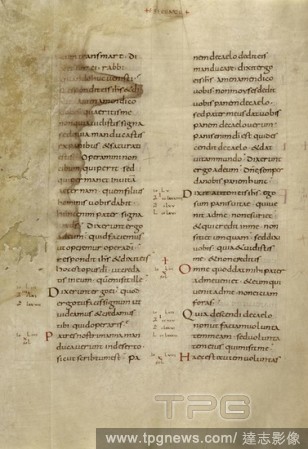 trans mare di
rabbi
quando huc uenisti
respondit eis ihs &
dixit amen amen dico
uobis quaeritis me
non quia uidistis signa
sed quia manducastis
ex panibus & saturati
estis Operamini non
cibum qui perit sed
qui permanet in uita
aeternam quem filius
hominis uobis dabit
hunc enim pater signa
uit ds Dixerunt ergo
ad eum quid faciemus
ut operemur opera di
respondit ihs & dixit eis
hoc est opus di ut creda
tis in eum quem misit ille
Dixerunt ergo ei quod
ergo tu facis signum ut
uideamus & credamus
tibi quid operaris
Patres nostri manna man
ducauerunt in deserto
sicut scriptum est Pa
nem de caelo dedit eis
manducare dixit ergo
eis ihs amen amen dico
uobis non moyses dedit
uobis panem de caelo
sed pater meus dat uobis
panem de caelo uerum
panis enim di est qui des
cendit de caelo & dat
uitam mundo Dixerunt
ergo ad eum dne semper
da nobis panem hunc
Dixit autem eis ihs ego
sum panis uitae qui ueni
et ad me non esuri&
& qui credit in me non
siti& umquam sed dixi
uobis quia & uidistis
me & non creditis
Omne quod dat mihi pater
ad me ueni& & eum qui
uenit ad me non eiciam
foras
Quia descendi de caelo
non ut faciam uolunta
tem meam sed uolunta
tem eius qui misit me
Haec est enim uoluntas
TPG
www.tpgnews.com/ 達志影像